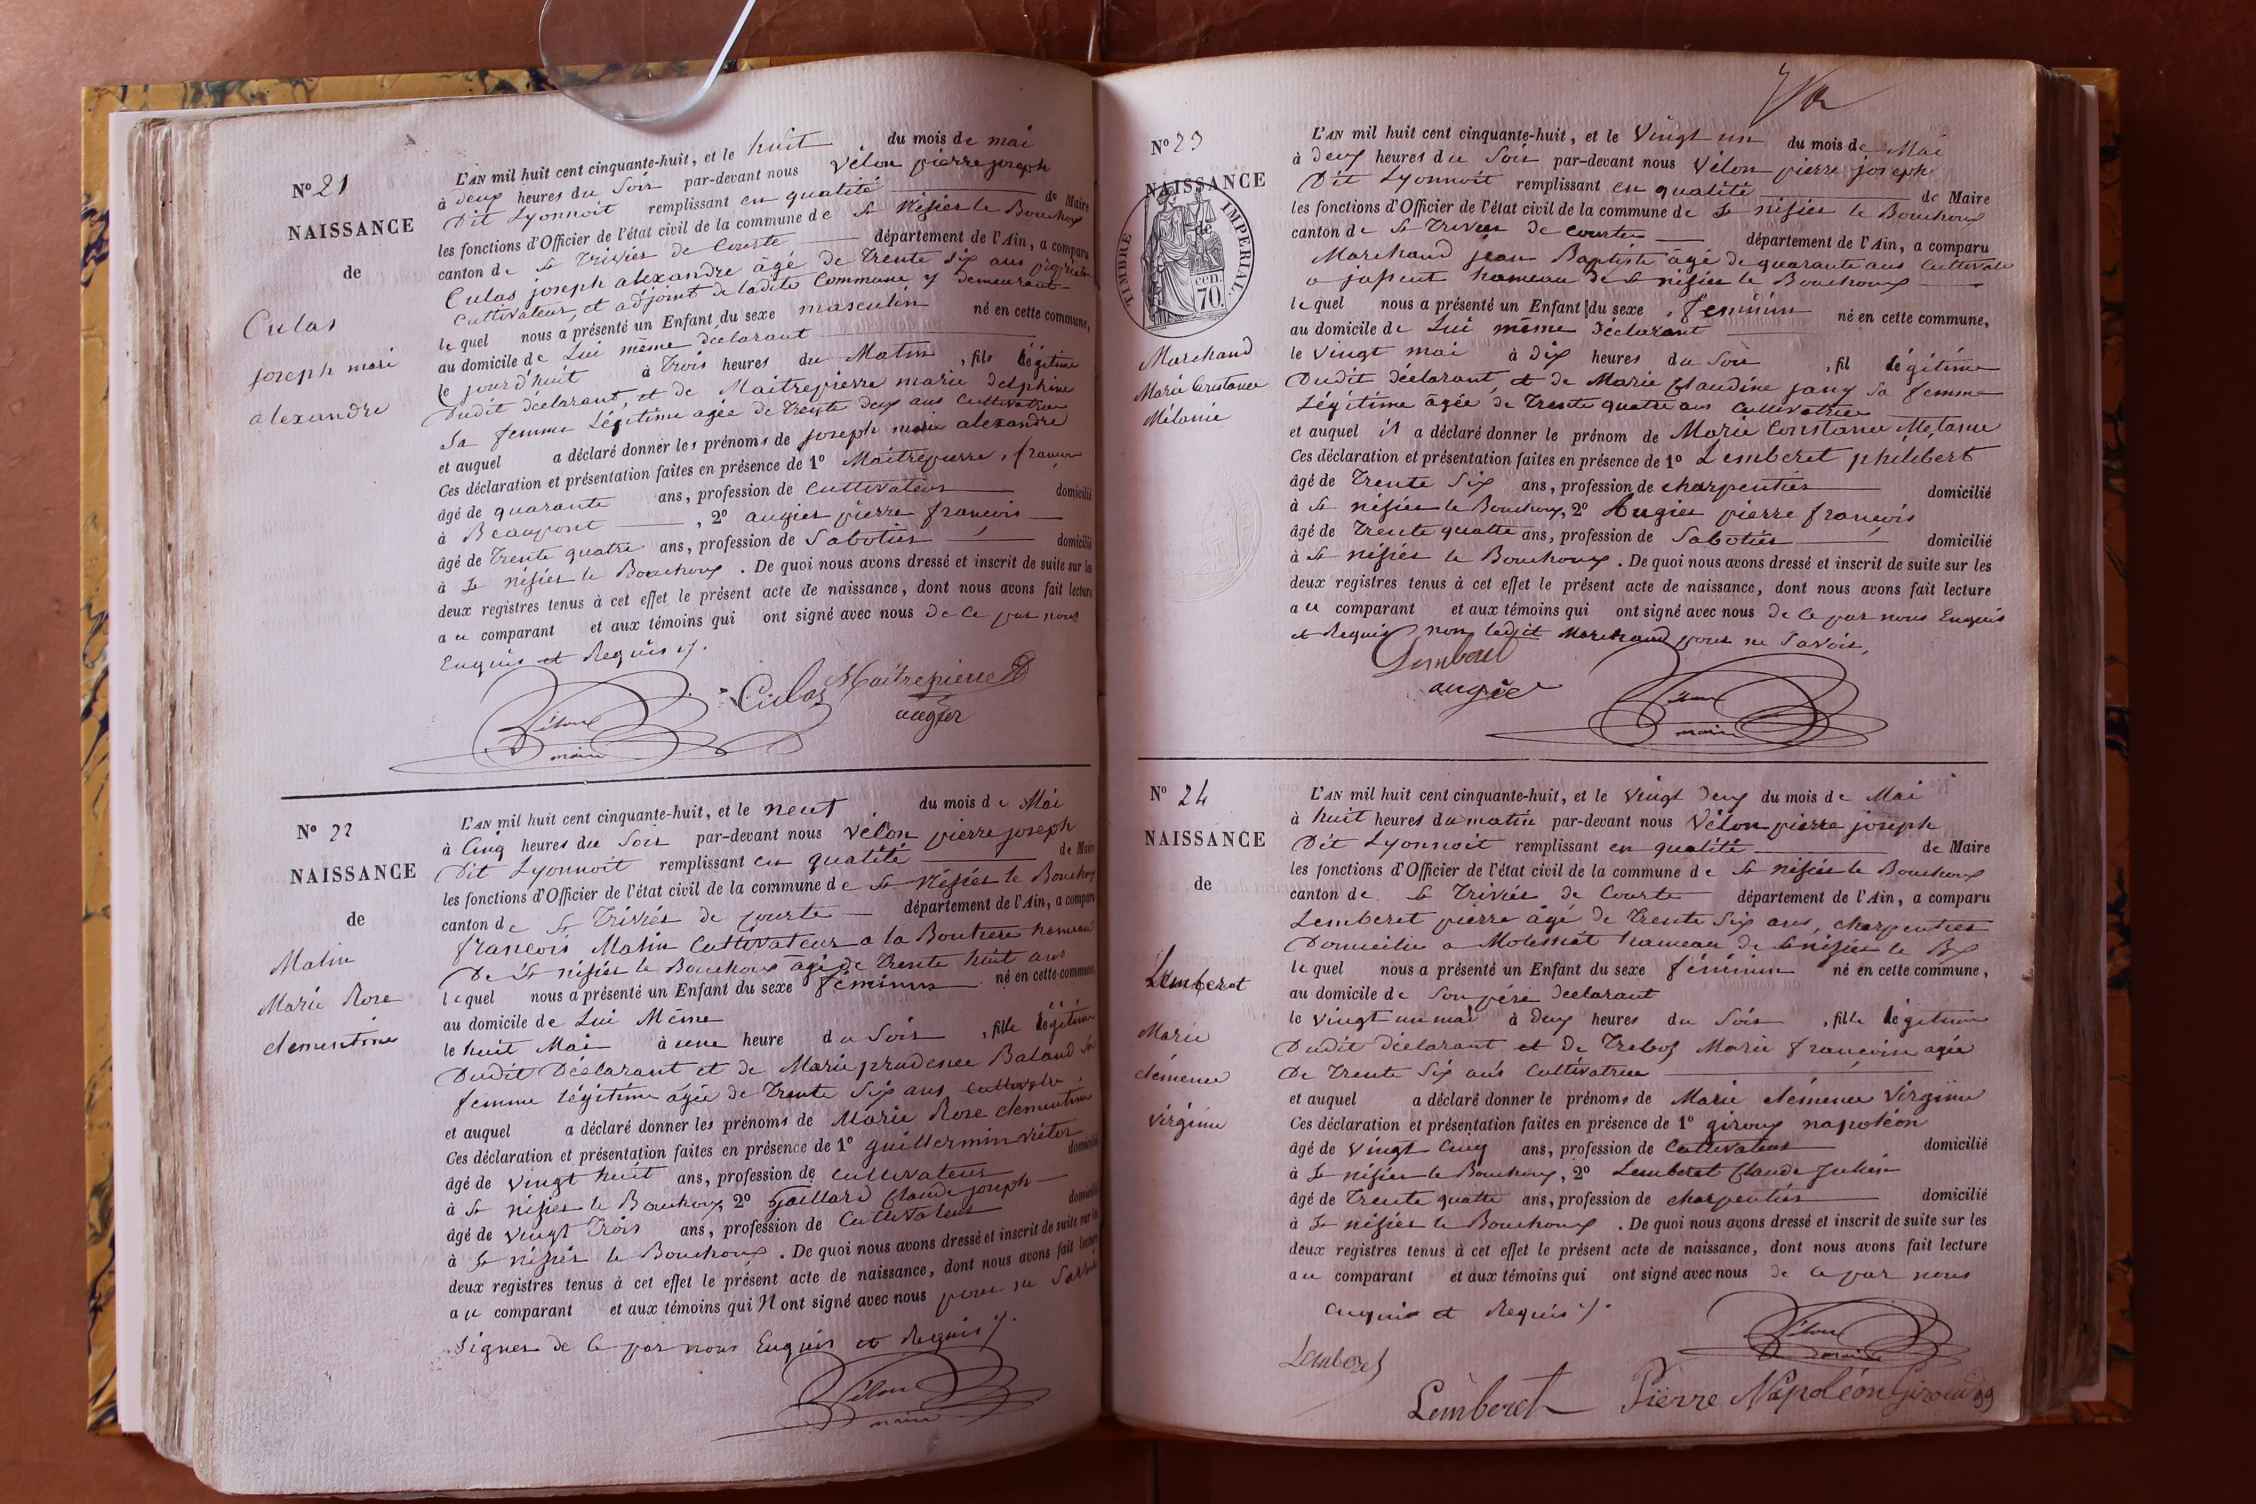 N° 21
NAISSANCE
de
Culas
joseph mari
alexandre
L'AN mil huit cent cinquante-huit, et le huit du mois de mai
à deux heures du Soir par-devant nous Vélon pierre joseph
Dit Lyonnoit remplissant en qualité de Maire
les fonctions d'Officier de l'état civil de la commune de St Nisier le Bouchoux
canton de St Trivier de Courte département de l'Ain, a comparu
Culas joseph alexandre âgé de Trente Six ans propriétaire
Cultivateur, et adjoint de ladite Commune y Demeurant
lequel nous a présenté un Enfant du sexe masculin né en cette commune,
au domicile de Lui même déclarant
le jourd'huit à Trois heures du Matin, fils légitime
Dudit déclarant, et de Maitrepierre marie delphine
Sa femme Légitime agée de Trente deux ans Cultivatrice
et auquel a déclaré donner les prénoms de joseph marie alexandre
Ces déclaration et présentation faites en présence de 1° Maitrepierre, françois
âgé de quarante ans, profession de Cultivateur domicilié
à Beaupont, 2° augier pierre françois
âgé de Trente quatre ans, profession de Sabotier domicilié
à St nisier le Bouchoux. De quoi nous avons dressé et inscrit de suite sur les
deux registres tenus à cet effet le présent acte de naissance, dont nous avons fait lecture
au comparant et aux témoins qui ont signé avec nous de Ce par nous
Enquis et Requis ./.
Culas Maitrepierre
augier
Vélon
maire
N° 22
NAISSANCE
de
Matin
Marie Rose
clementine
L'AN mil huit cent cinquante-huit, et le neuf du mois de Mai
à Cinq heures du Soir par-devant nous Vélon pierre joseph
Dit Lyonnoit remplissant en qualité de Maire
les fonctions d'Officier de l'état civil de la commune de St Nisier le Bouchoux
canton de St Trivier de Courte département de l'Ain, a comparu
françois Matin Cultivateur a la Boutiere hameau
De St nisier le Bouchoux âgé de Trente huit ans
lequel nous a présenté un Enfant du sexe féminin né en cette commune,
au domicile de Lui Même
le huit Mai à une heure du Soir, fille légitime
Dudit Déclarant et de Marie prudence Baland Sa
femme légitime âgée de Trente Six ans Cultivatre
et auquel a déclaré donner les prénoms de Marie Rose clementine
Ces déclaration et présentation faites en présence de 1° guillermin victor
âgé de vingt huit ans, profession de Cultivateur domicilié
à St nisier le Bouchoux, 2° Gaillard Claude joseph
âgé de vingt Trois ans, profession de Cultivateur domicilié
à St nisier le Bouchoux. De quoi nous avons dressé et inscrit de suite sur les
deux registres tenus à cet effet le présent acte de naissance, dont nous avons fait lecture
au comparant et aux témoins qui N ont signé avec nous pour ne Savoir
Signer de Ce par nous Enquis et Requis ./.
Vélon
maire
N° 23
NAISSANCE
de
TIMBRE IMPERIAL
70 cen.
Marchand
Marie Constance
Mélanie
L'AN mil huit cent cinquante-huit, et le Vingt un du mois de Mai
à deux heures du Soir par-devant nous Vélon pierre joseph
Dit Lyonnoit remplissant en qualité de Maire
les fonctions d'Officier de l'état civil de la commune de St nisier le Bouchoux
canton de St Trivier de Courte département de l'Ain, a comparu
Marchand jean Baptiste âgé de quarante ans Cultivate
a jassent hameau de St nisier le Bouchoux
lequel nous a présenté un Enfant du sexe féminin né en cette commune,
au domicile de Lui même Déclarant
le Vingt mai à Dix heures du Soir, fil légitime
Dudit déclarant, et de Marie Claudine jany Sa femme
Légitime âgée de Trente quatre ans Cultivatrice
et auquel il a déclaré donner le prénom de Marie Constance Mélanie
Ces déclaration et présentation faites en présence de 1° Lemberet philibert
âgé de Trente Six ans, profession de charpentier domicilié
à St nisier le Bouchoux, 2° Augier pierre françois
âgé de Trente quatre ans, profession de Sabotier domicilié
à St nisier le Bouchoux. De quoi nous avons dressé et inscrit de suite sur les
deux registres tenus à cet effet le présent acte de naissance, dont nous avons fait lecture
au comparant et aux témoins qui ont signé avec nous de Ce par nous Enquis
et Requis non ledit Marchand pour ne Savoir,
Lemberet
augier
Vélon
maire
N° 24
NAISSANCE
de
Lemberet
Marie
clémence
virginie
L'AN mil huit cent cinquante-huit, et le Vingt Deux du mois de Mai
à huit heures du matin par-devant nous Vélon pierre joseph
Dit Lyonnoit remplissant en qualité de Maire
les fonctions d'Officier de l'état civil de la commune de St nisier le Bouchoux
canton de St Trivier de Courte département de l'Ain, a comparu
Lemberet pierre âgé de Trente Six ans, charpentier
Domicilié a Molesniat hameau de St nisier le Bx
lequel nous a présenté un Enfant du sexe féminin né en cette commune,
au domicile de Son père Déclarant
le Vingt un mai à Deux heures du Soir, fille légitime
Dudit déclarant et De Treboz Marie françoise agée
De Trente Six ans Cultivatrice
et auquel a déclaré donner le prénoms de Marie clémence Virginie
Ces déclaration et présentation faites en présence de 1° giroux napoléon
âgé de vingt Cinq ans, profession de Cultivateur domicilié
à St nisier le Bouchoux, 2° Lemberet Claude Julien
âgé de Trente quatre ans, profession de charpentier domicilié
à St nisier le Bouchoux. De quoi nous avons dressé et inscrit de suite sur les
deux registres tenus à cet effet le présent acte de naissance, dont nous avons fait lecture
au comparant et aux témoins qui ont signé avec nous de Ce par nous
enquis et Requis ./.
Vélon
maire
Lemberet
Lemberet Pierre Napoléon Giroud